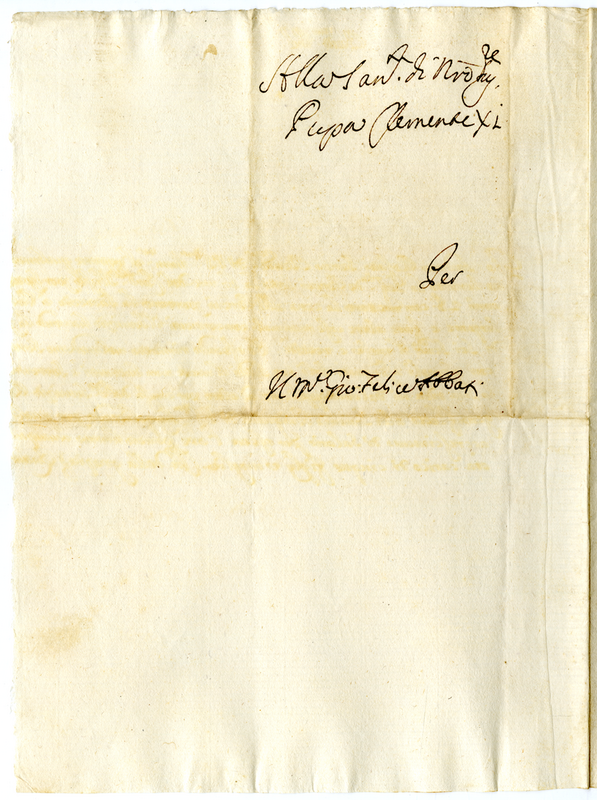 Alla San.tà di Nrō Sig.re
Papa Clemente XI
Per
Il M.o Gio: Felice Abbati